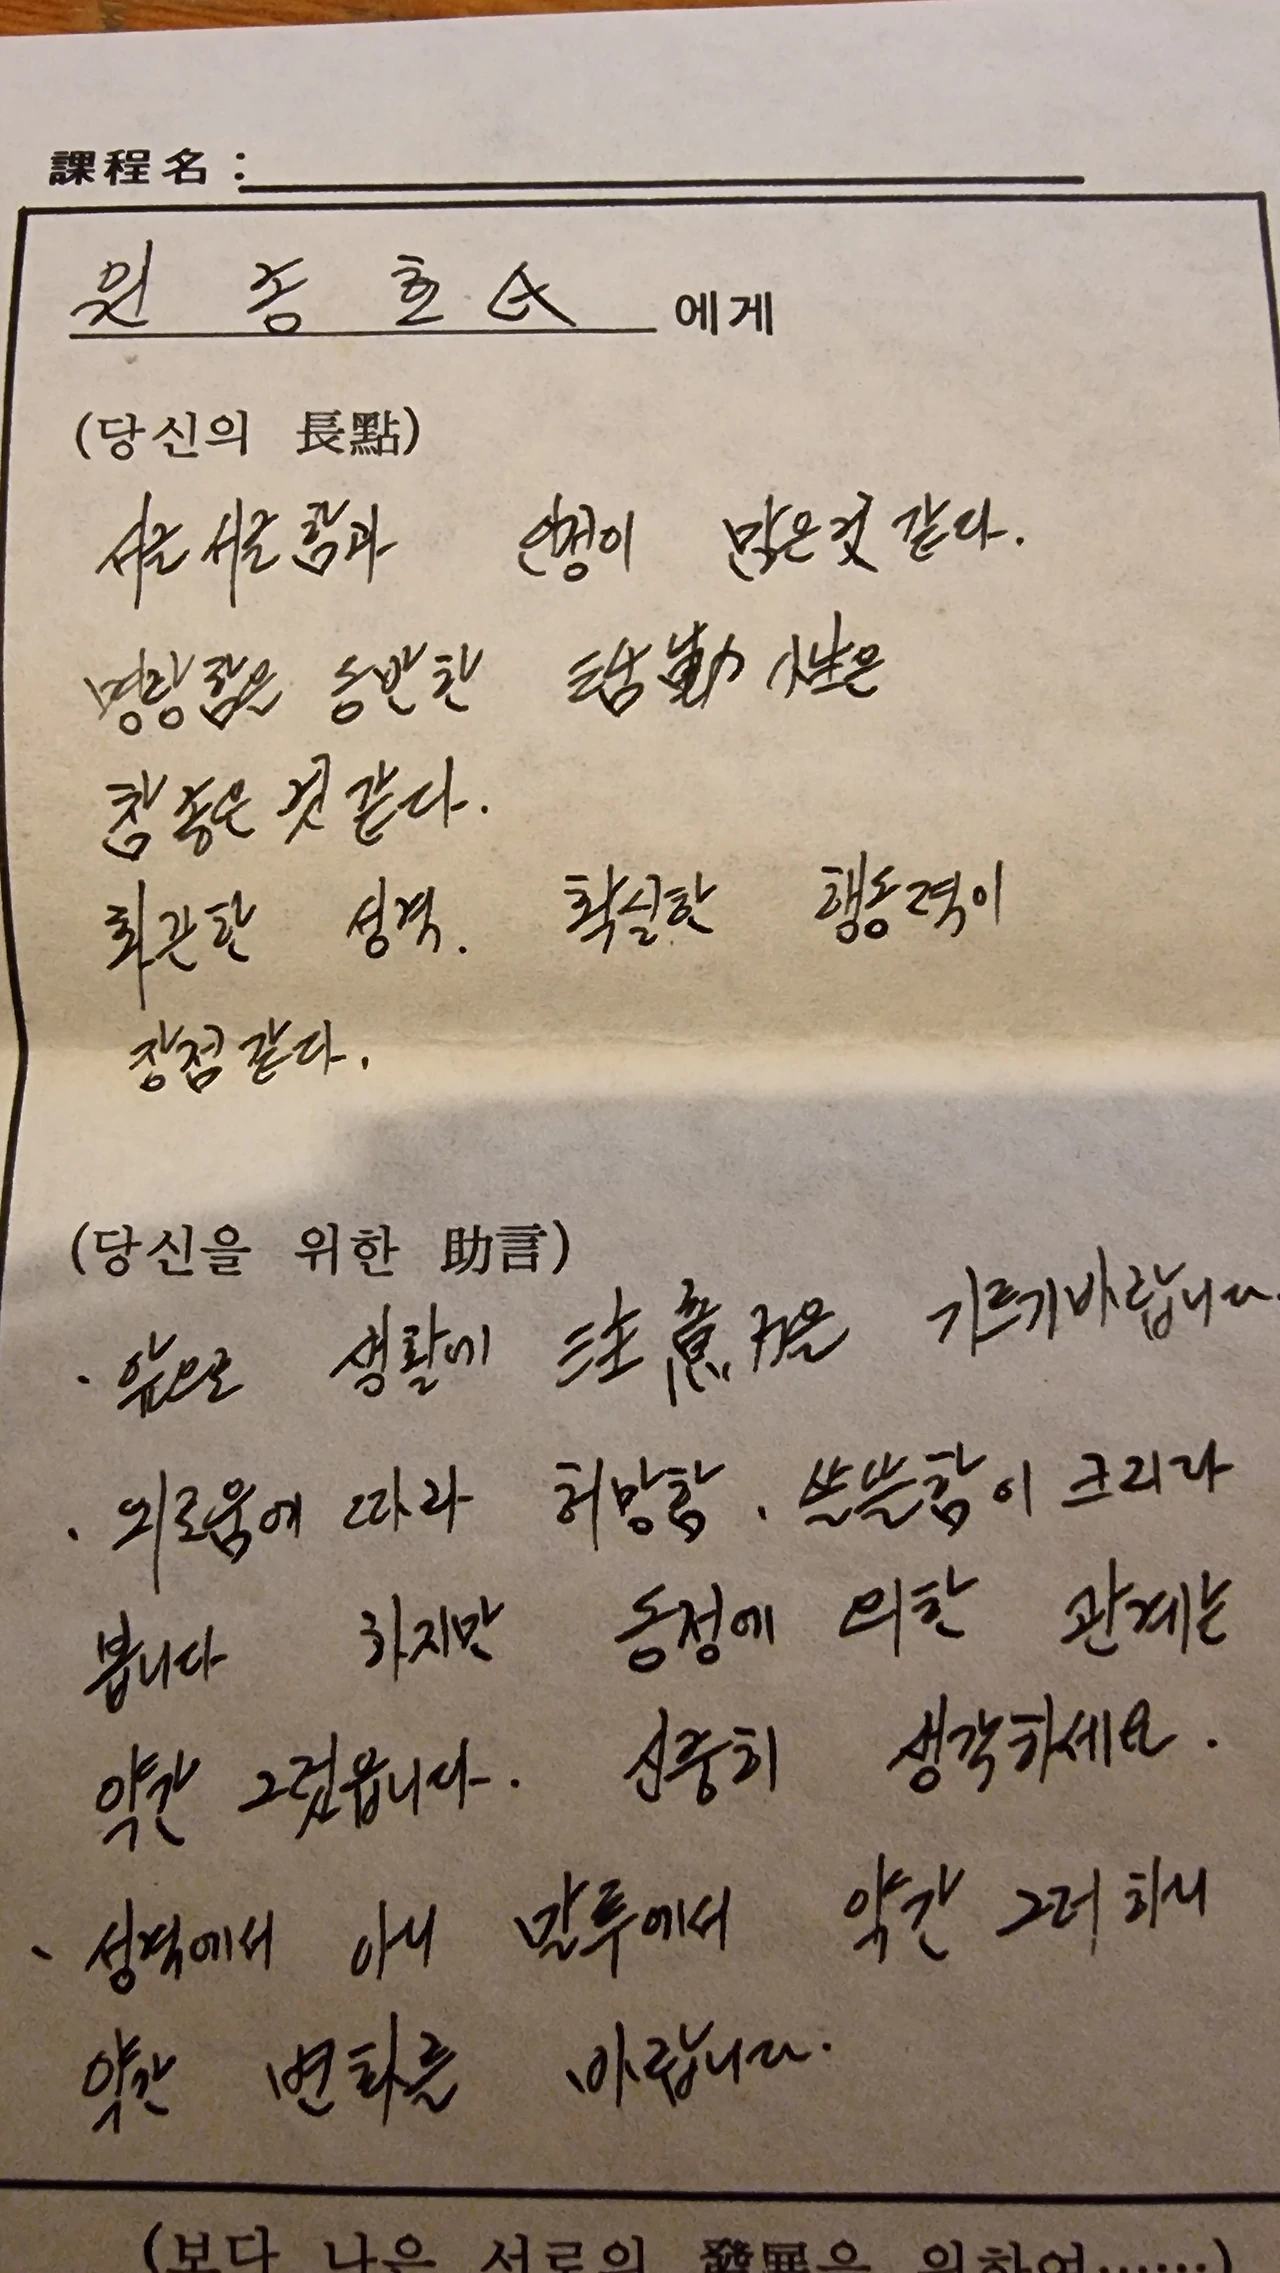 課程名 :
원 종 호 氏 에게
(당신의 長點)
서글서글함과 인정이 많은것 같다.
명랑함은 동반한 活動性은
참 좋은 것 같다.
쾌관한 성격. 확실한 행동력이
장점 같다.
(당신을 위한 助言)
· 앞으로 생활에 注意力을 기르기바랍니다.
· 외로움에 따라 허망함. 쓸쓸함이 크리라
봅니다 하지만 동정에 의한 관계는
약간 그렇읍니다. 신중히 생각하세요.
· 성격에서 아니 말투에서 약간 그러하니
약간 변화를 바랍니다.
(보다 나은 서로의 發展을 위하여……)